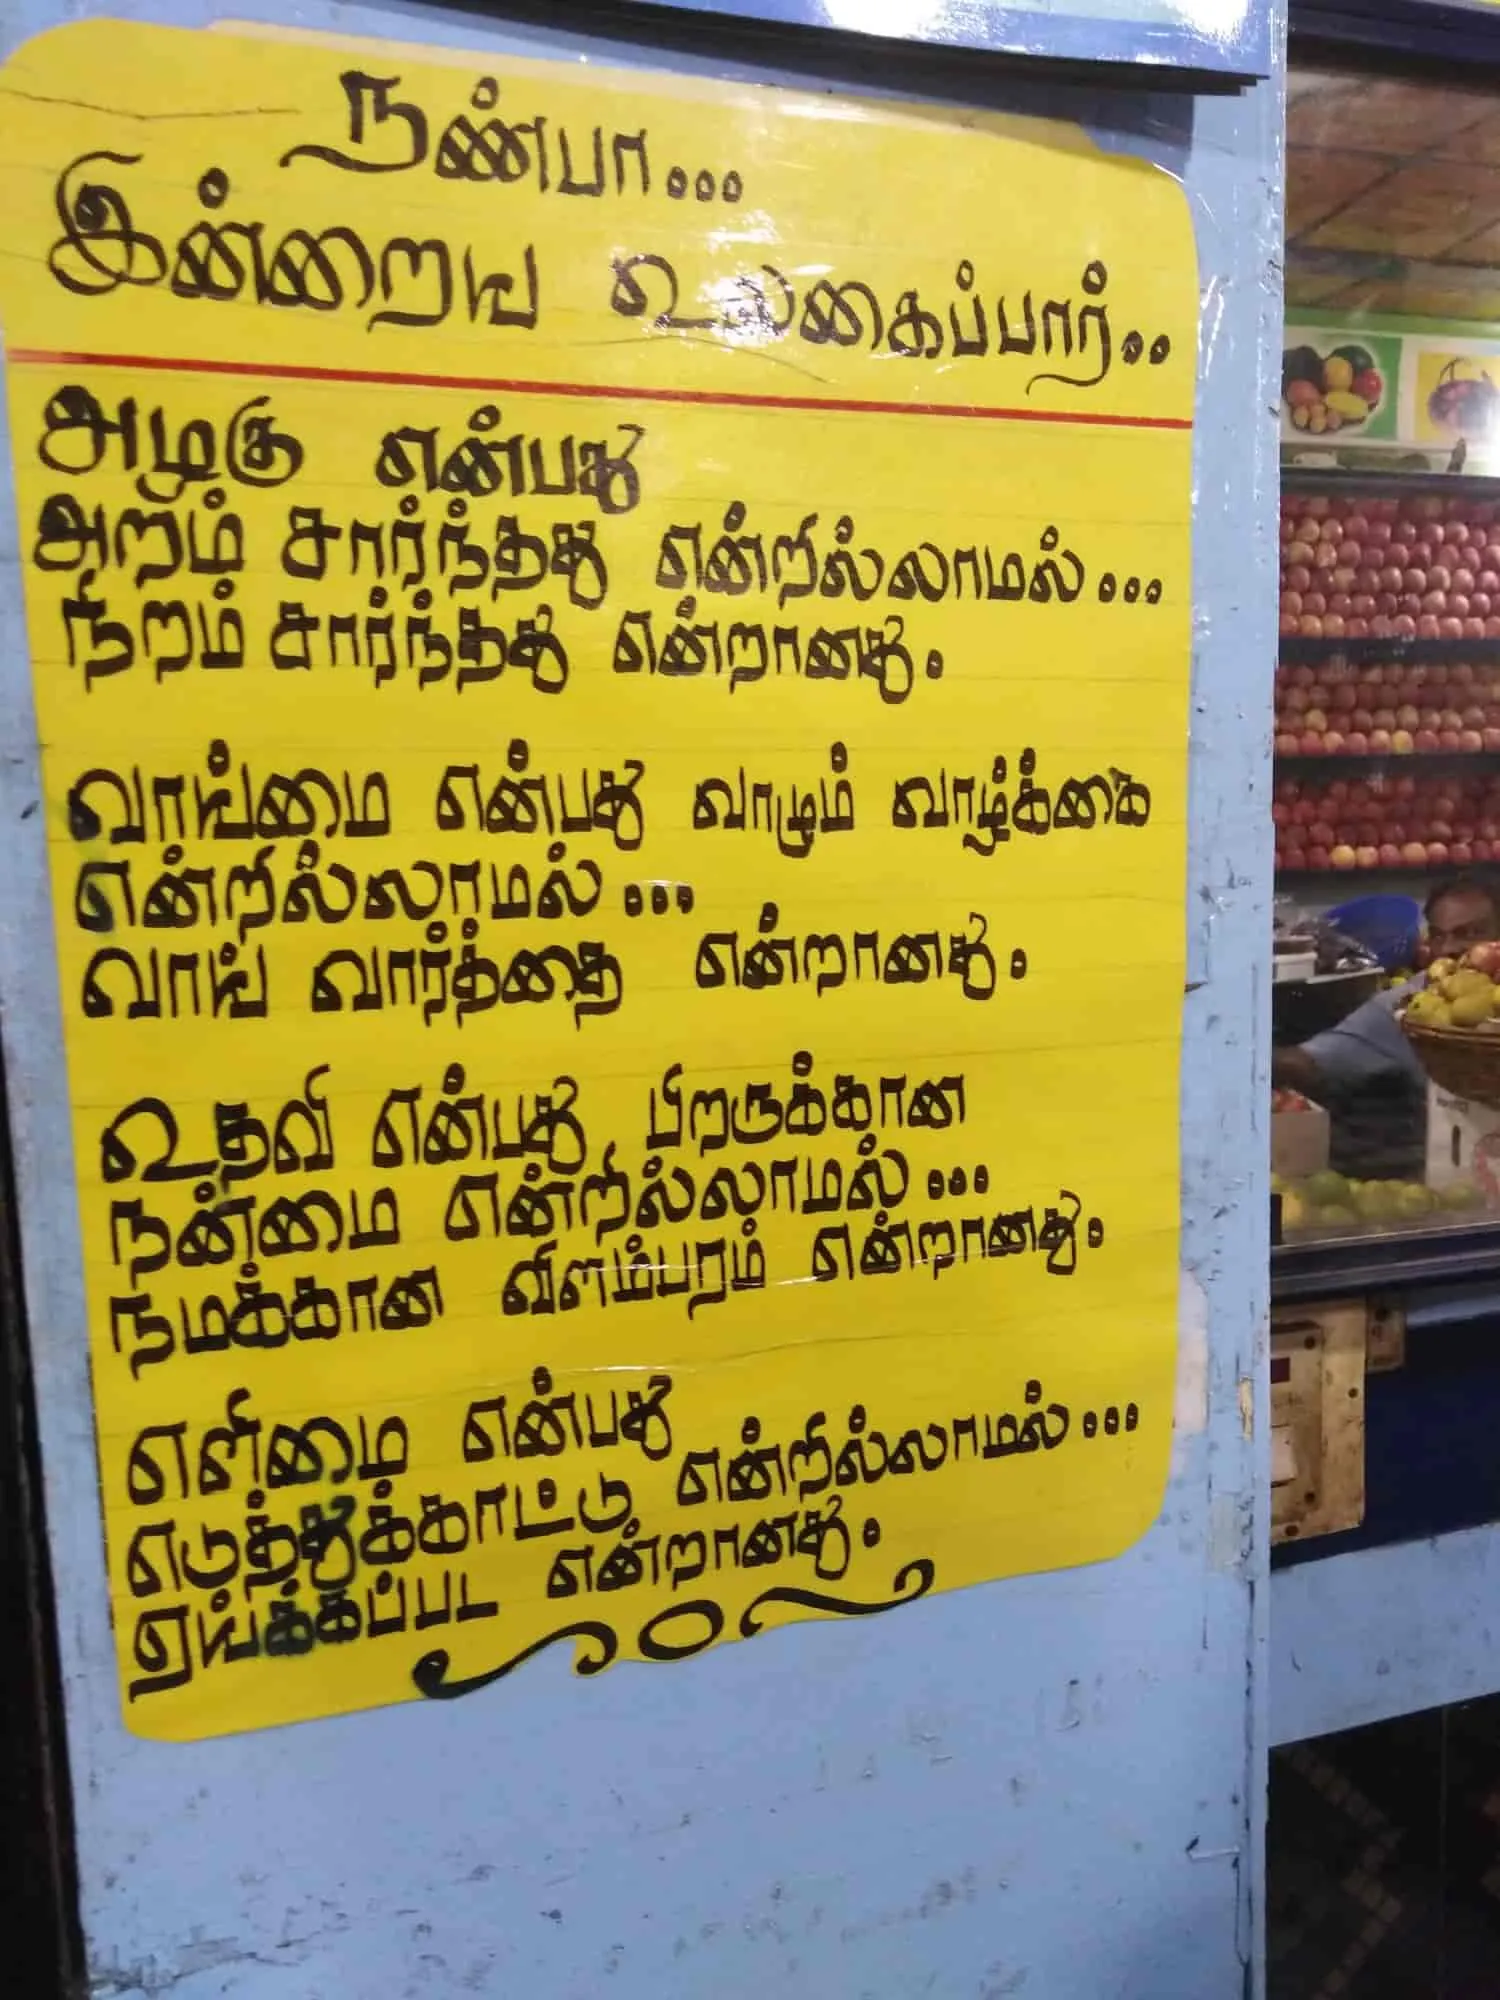 நண்பா...
இன்றைய உலகைப்பார்..
அழகு என்பது
அறம் சார்ந்தது என்றில்லாமல்...
நிறம் சார்ந்தது என்றானது.
வாய்மை என்பது வாழும் வாழ்க்கை
என்றில்லாமல்...
வாய் வார்த்தை என்றானது.
உதவி என்பது பிறருக்கான
நன்மை என்றில்லாமல்...
நமக்கான விளம்பரம் என்றானது.
எளிமை என்பது
எடுத்துக்காட்டு என்றில்லாமல்...
ஏய்க்கப்பட என்றானது.